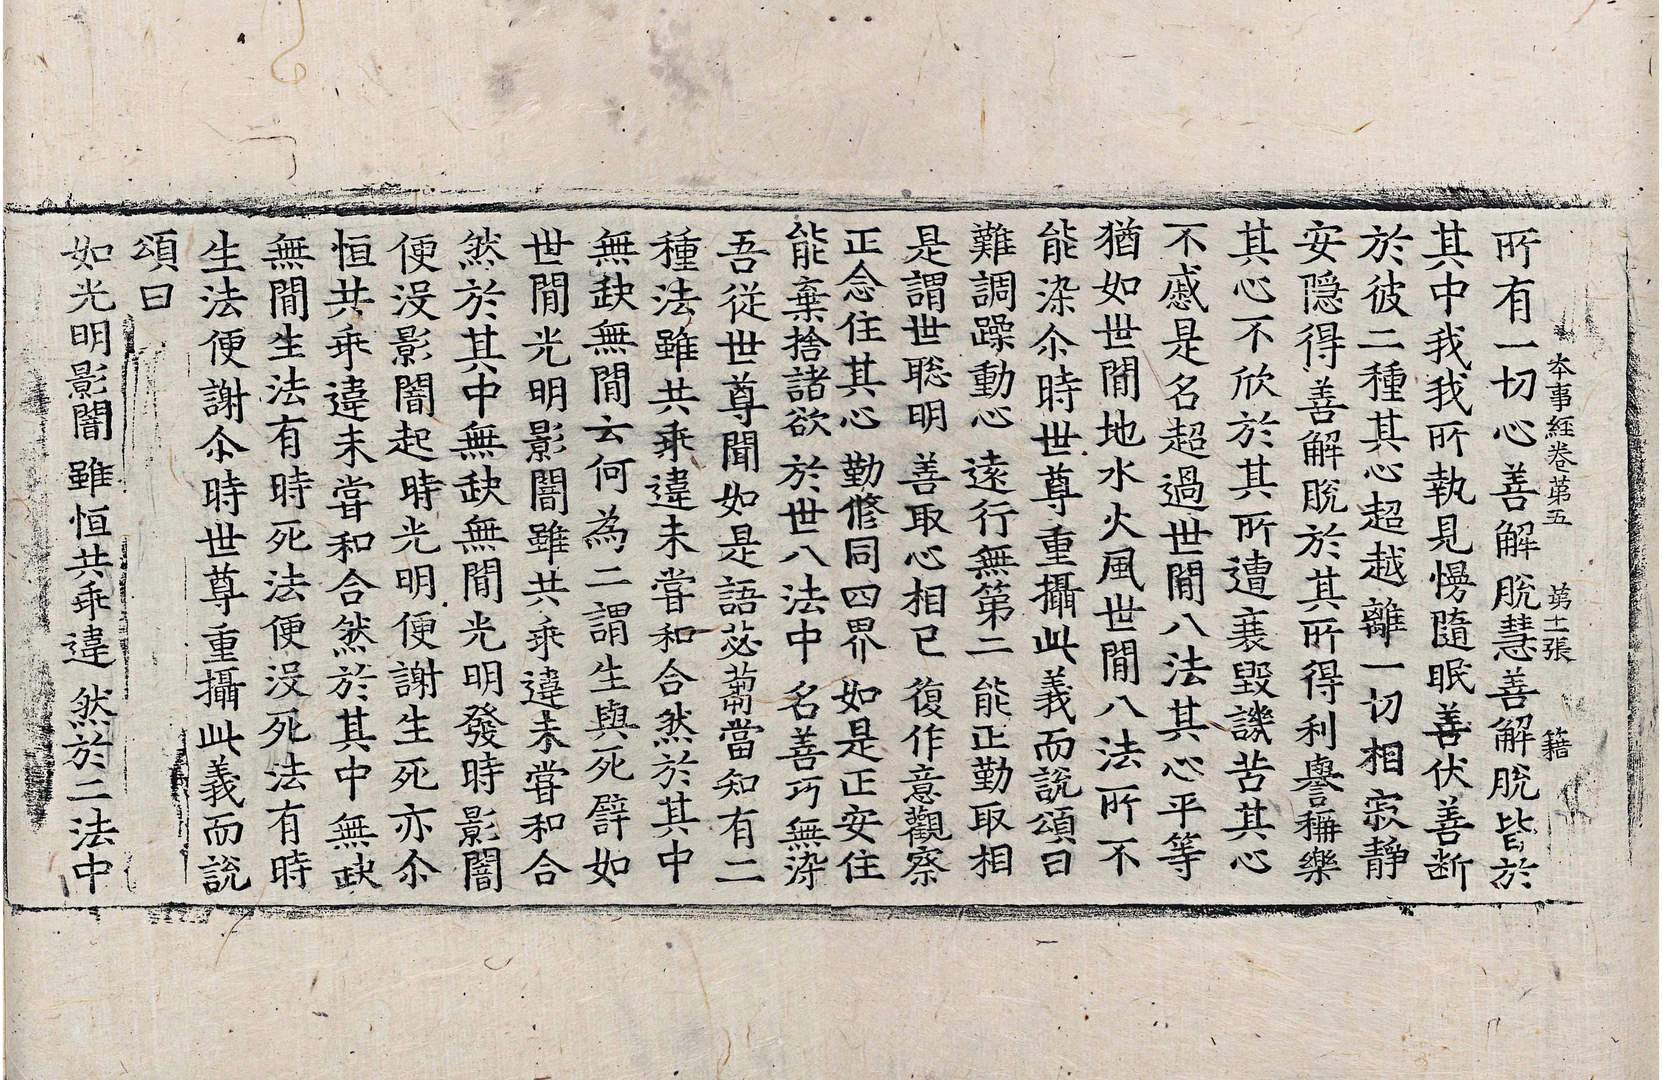 本事経卷苐五 苐十一張 籍
所有一切心善解脫慧善解脫皆於
其中我我所執見慢隨眠善伏善断
於彼二種其心超越離一切相寂靜
安隱得善解脫於其所得利譽稱樂
其心不欣於其所遭衰毀譏苦其心
不慼是名超過世閒八法其心平等
猶如世閒地水火風世閒八法所不
能染尒時世尊重攝此義而說頌曰
難調躁動心 遠行無第二 能正勤取相
是謂世聡明 善取心相已 復作意觀察
正念住其心 勤修同四界 如是正安住
能棄捨諸欲 於世八法中 名善巧無染
吾從世尊聞如是語苾蒭當知有二
種法雖共乖違未嘗和合然於其中
無缺無閒云何為二謂生與死譬如
世閒光明影闇雖共乖違未嘗和合
然於其中無缺無閒光明發時影闇
便没影闇起時光明便謝生死亦尒
恒共乖違未嘗和合然於其中無缺
無閒生法有時死法便没死法有時
生法便謝尒時世尊重攝此義而說
頌曰
如光明影闇 雖恒共乖違 然於二法中